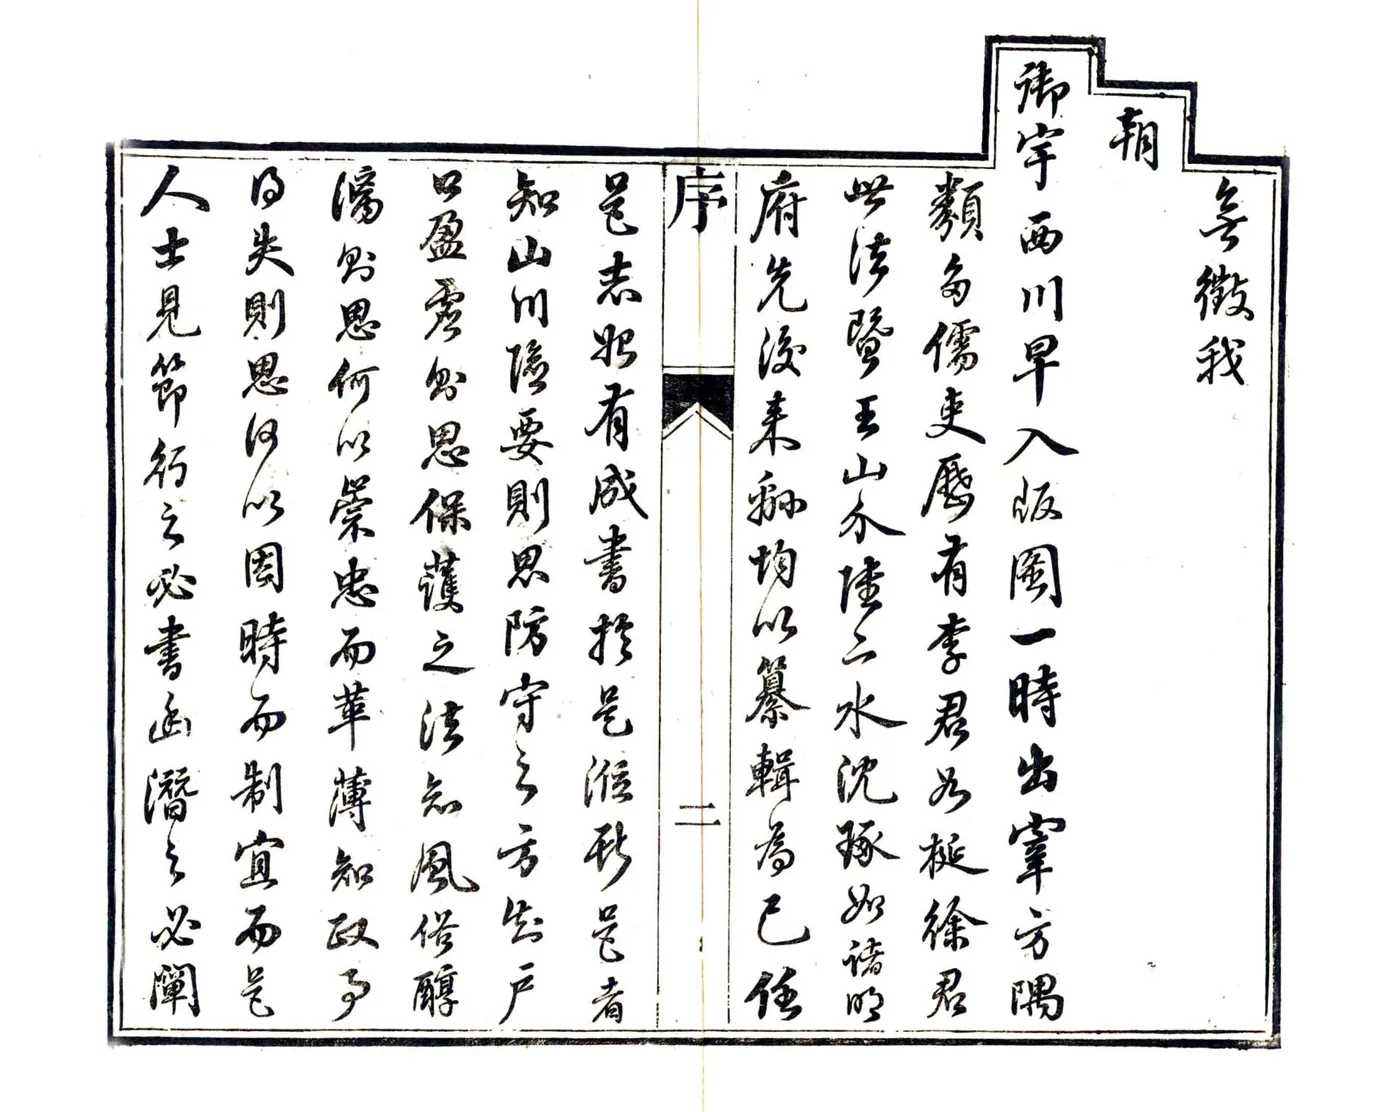 無徵我
朝
御宇西川早入版圖一時出宰方隅
類多儒吏歷有李君如梃徐君
世法暨王山介陸二水沈琢如諸明
府先後來均以纂輯為己任
序
二
邑志始有成書於是涖斯邑者
知山川險要則思防守之方知戶
口盈虛則思保護之法知風俗醇
漓則思何以崇忠而革薄知政事
得失則思何以因時而制宜而邑
人士見節行之必書幽潛之必闡